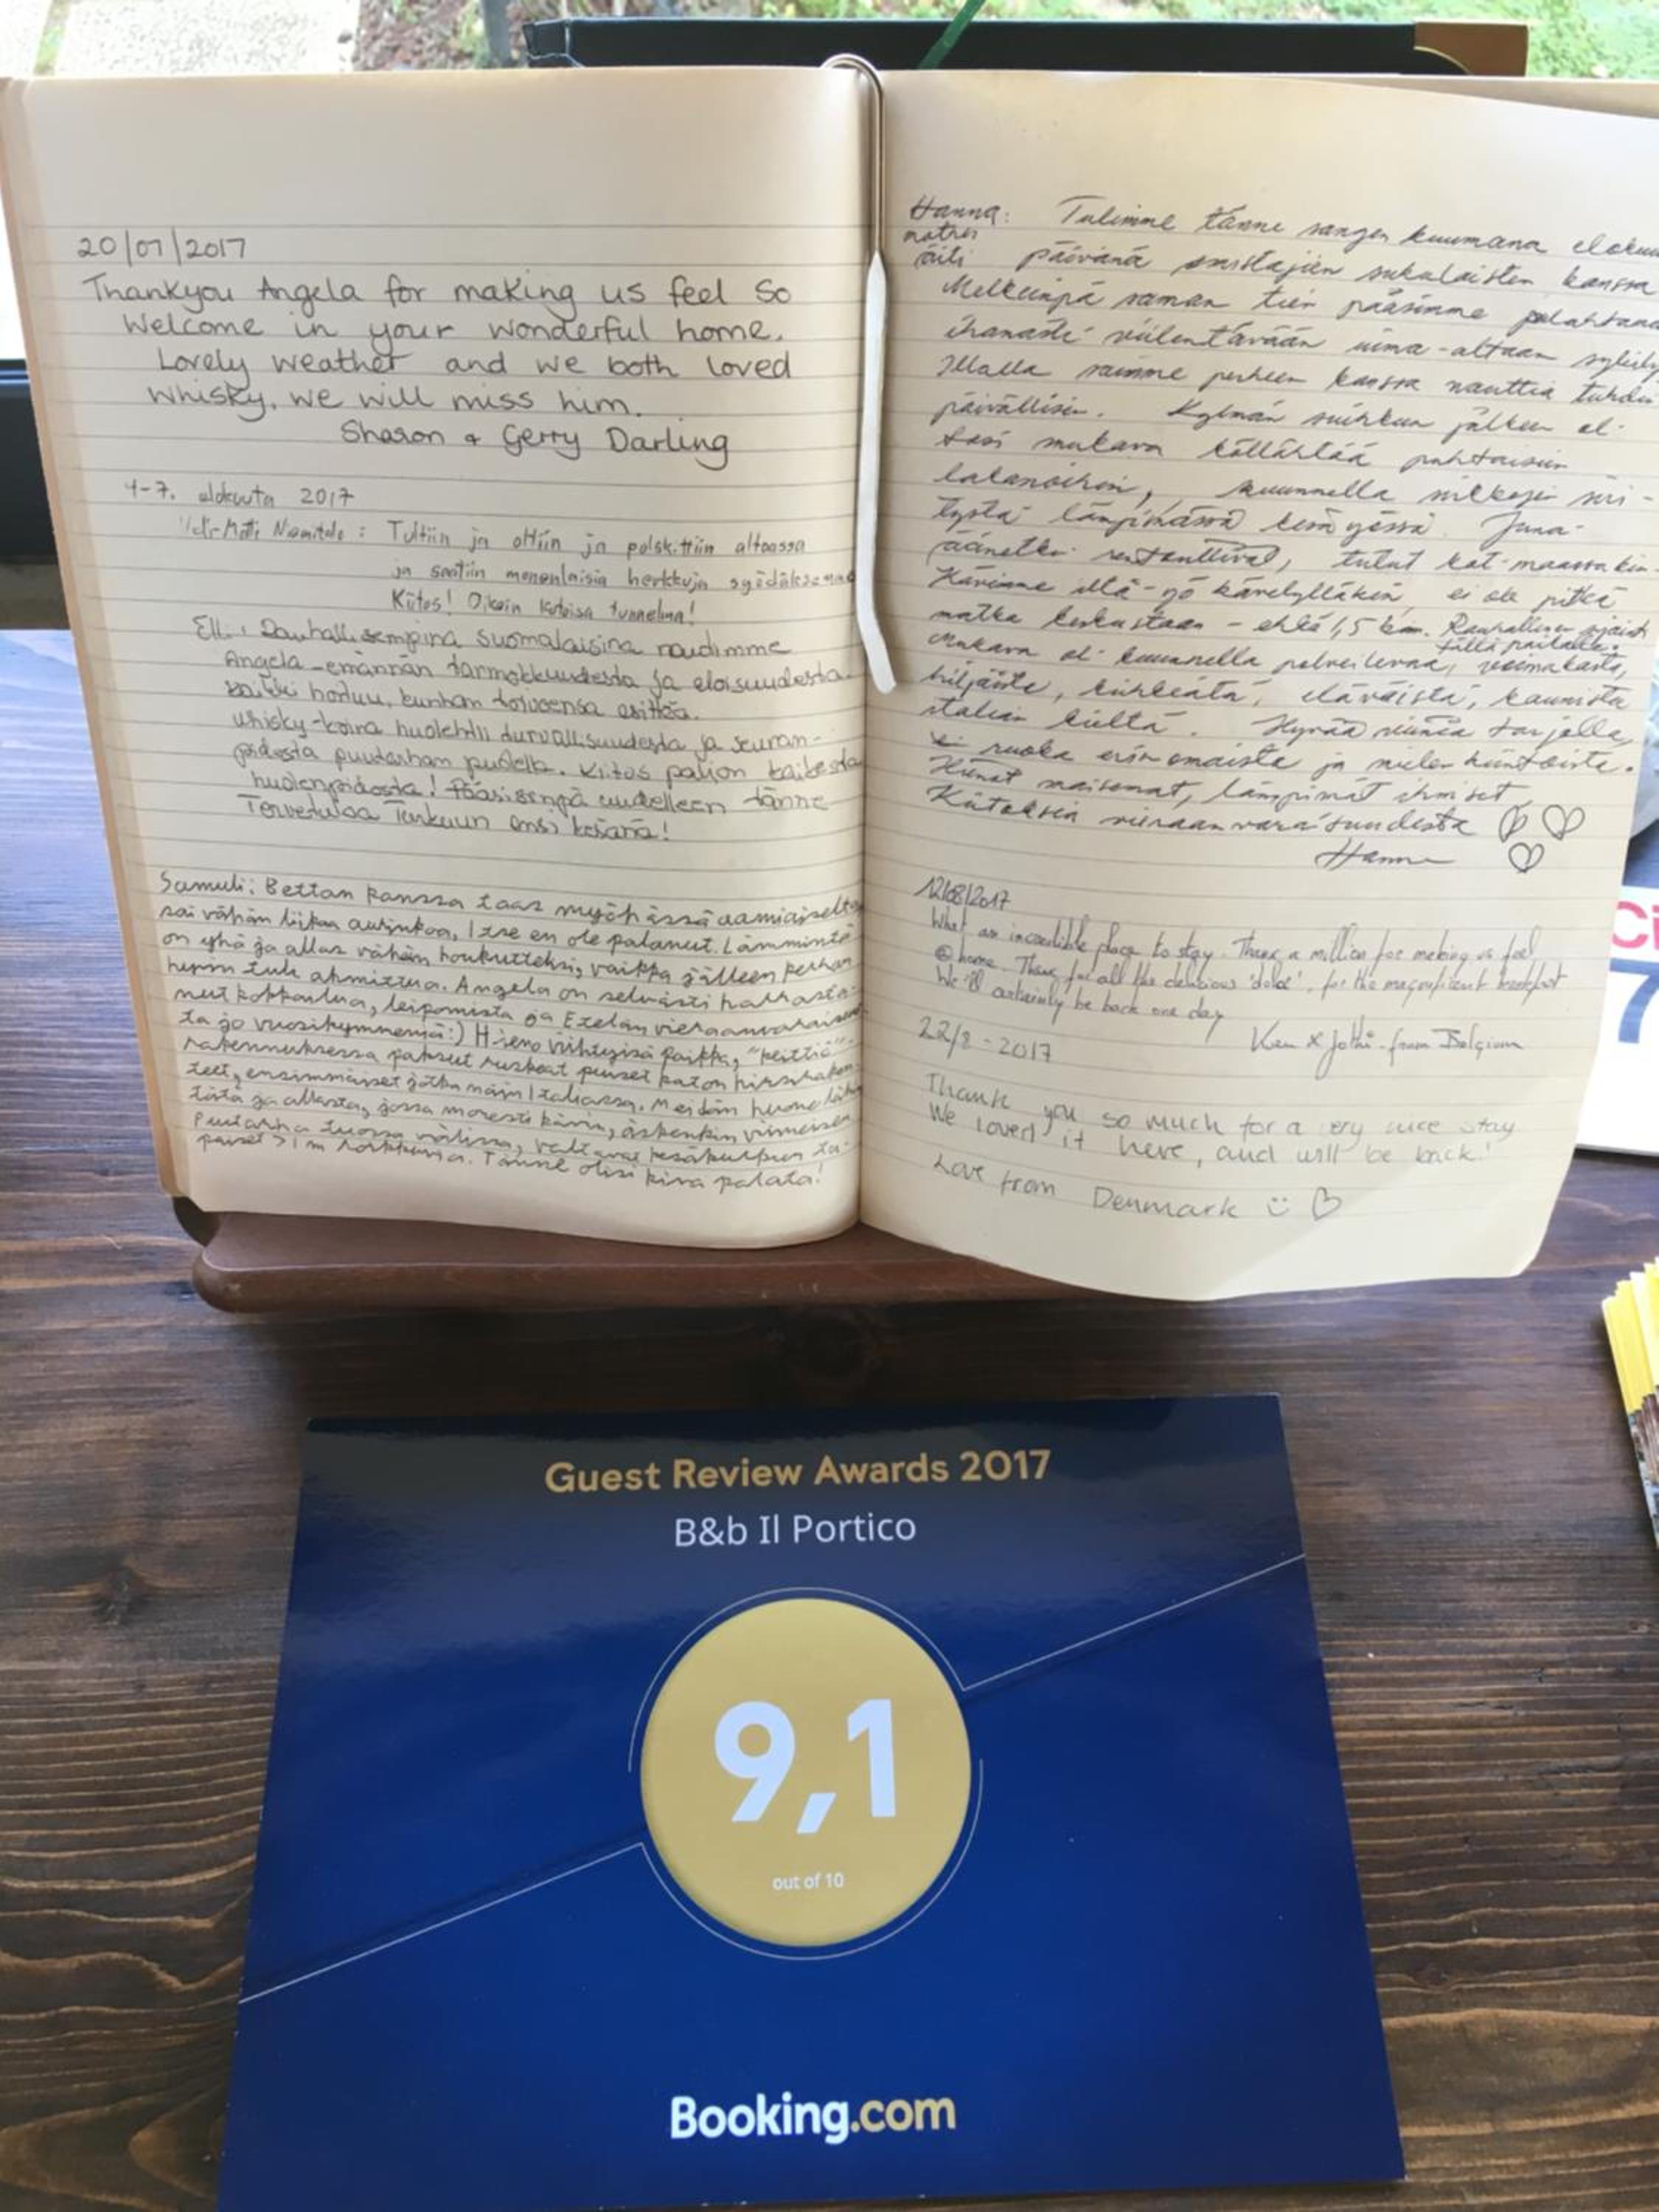 20/07/2017
Thankyou Angela for making us feel so
welcome in your wonderful home.
Lovely weather and we both loved
Whisky, we will miss him.
Sharon + Gerry Darling
4-7. elokuuta 2017
: Tultiin ja oltiin ja polskittiin altaassa
ja saatiin monenlaisia herkkuja syödäksemme
Kiitos! Oikein kotoisa tunnelma!
Elli: Rauhallisempina suomalaisina naudimme
Angela-emännän tarmokkuudesta ja eloisuudesta.
kaikki hoituu, kunhan toiveensa esittää.
Whisky-koira huolehtii turvallisuudesta ja seuran-
pidosta puutarhan puolella. Kiitos paljon kaikesta
huolenpidosta! Pääsisinpä uudelleen tänne
Tervetuloa Turkuun ensi kesänä!
Samuli: Bettan kanssa taas myöhässä aamiaiselta
sai vähän liikaa aurinkoa, itse en ole palanut. Lämmintä
on yhä ja allas vähän houkutteleksi, vaikka jälleen kerran
tuli ahmittua. Angela on selvästi harrasta-
nut kokkailua, leipomista ja Etelän vieraanvaraisuut
ta jo vuosikymmeniä:) Hieno viihtyisä paikka, "keittiö"-
rakennuksessa paksut ruskeat puiset katon
ensimmäiset jotka näin Italiassa. Meidän huone
ja allasta, jossa monesti kävin, äskenkin viimeisen
Puutarha tuossa välissä, valtavat
>1m korkuisia. Tänne olisi kiva palata!
Hanna: Tulimme tänne sangen kuumana elokuu
äiti päivänä sukulaisten kanssa
Melkeinpä saman tien pääsimme pulahtama
ihanasti viilentävään uima-altaan syleily
Illalla saimme perheen kanssa nauttia tuhdin
päivällisen. Kylmän suihkun jälkeen ol-
isi mukava köllähtää puhtaisiin
lakanoihin, kuunnella siri-
tystä lämpimässä kesäyössä. Juna-
äänetkin rentouttivat, tulut kot-maassakin.
Kävimme iltä-yö kävelylläkin, ei ole pitkä
matka keskustaan - ehkä 1,5 km. Rauhallinen sijainti
tällä paikalla.
Mukava oli kuunnella polveilevaa, voimakasta,
hiljaista, kiihkeätä, eläväistä, kaunista
italian kieltä. Hyvää viiniä tarjolla,
ruoka erinomaista ja mielenkiintoista.
Hienot maisemat, lämpimät ihmiset
Kiitoksia vieraanvaraisuudesta
Hanna
12/08/2017
What an incredible place to stay. Thanx a million for making us feel
@ home. Thanx for all the delicious 'dolce', for the magnificent breakfast
We'll certainly be back one day
Ken & Jothi - from Belgium
22/8-2017
Thank you so much for a very nice stay
We loved it here, and will be back!
Love from Denmark
Guest Review Awards 2017
B&b Il Portico
9,1
out of 10
Booking.com
Ci
7